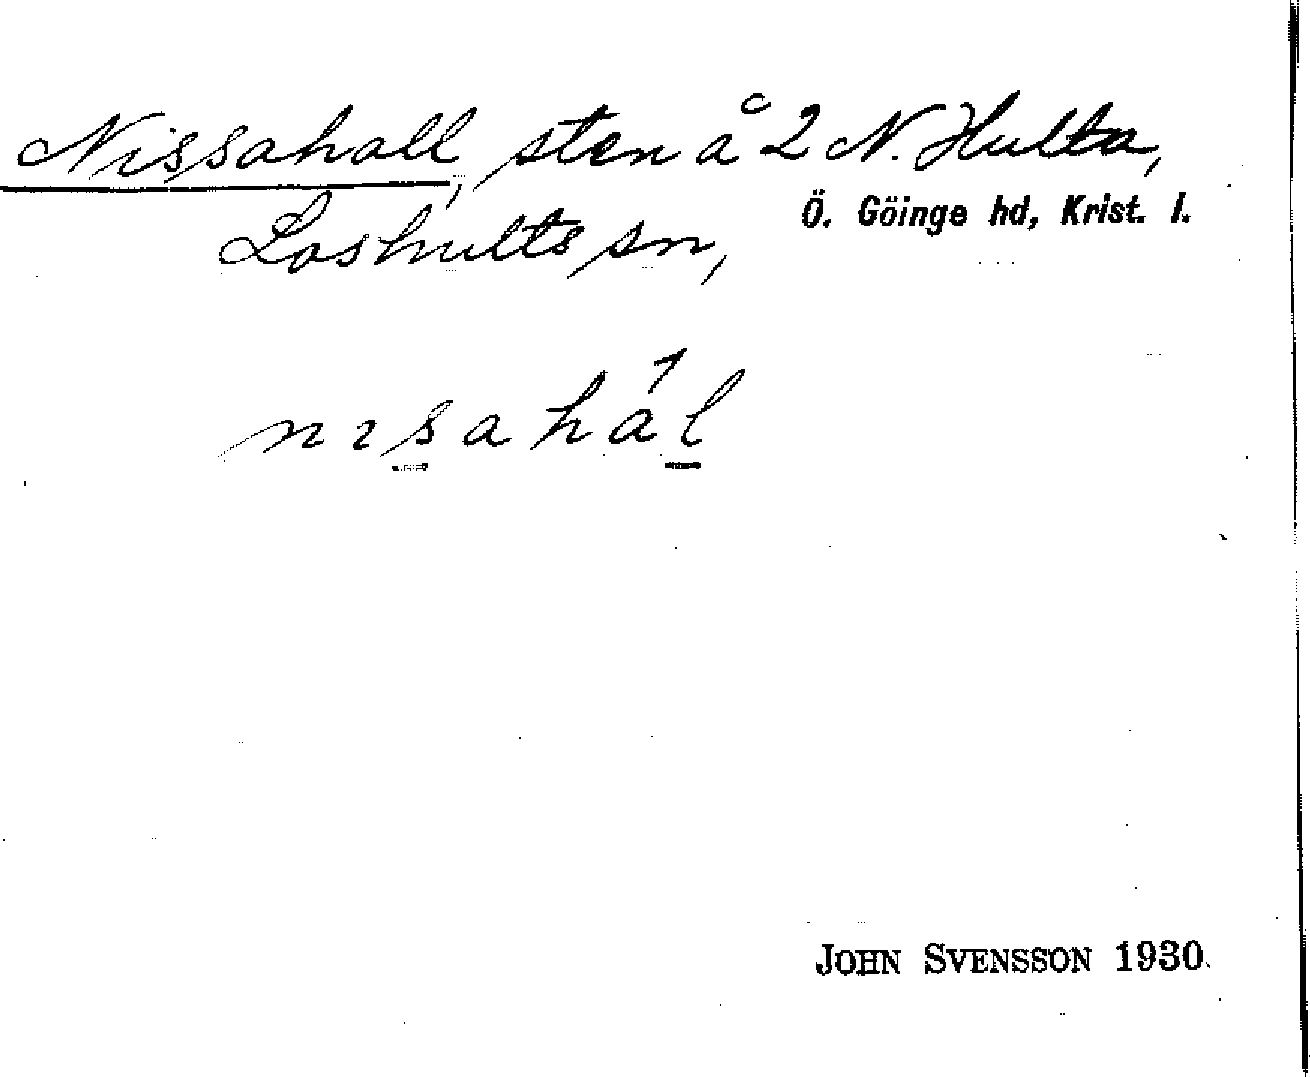 Nissahall, sten å 2 N. Hulta,
Ö. Göinge hd, Krist. l.
Loshults sn,
nɪsahál
JOHN SVENSSON 1930.